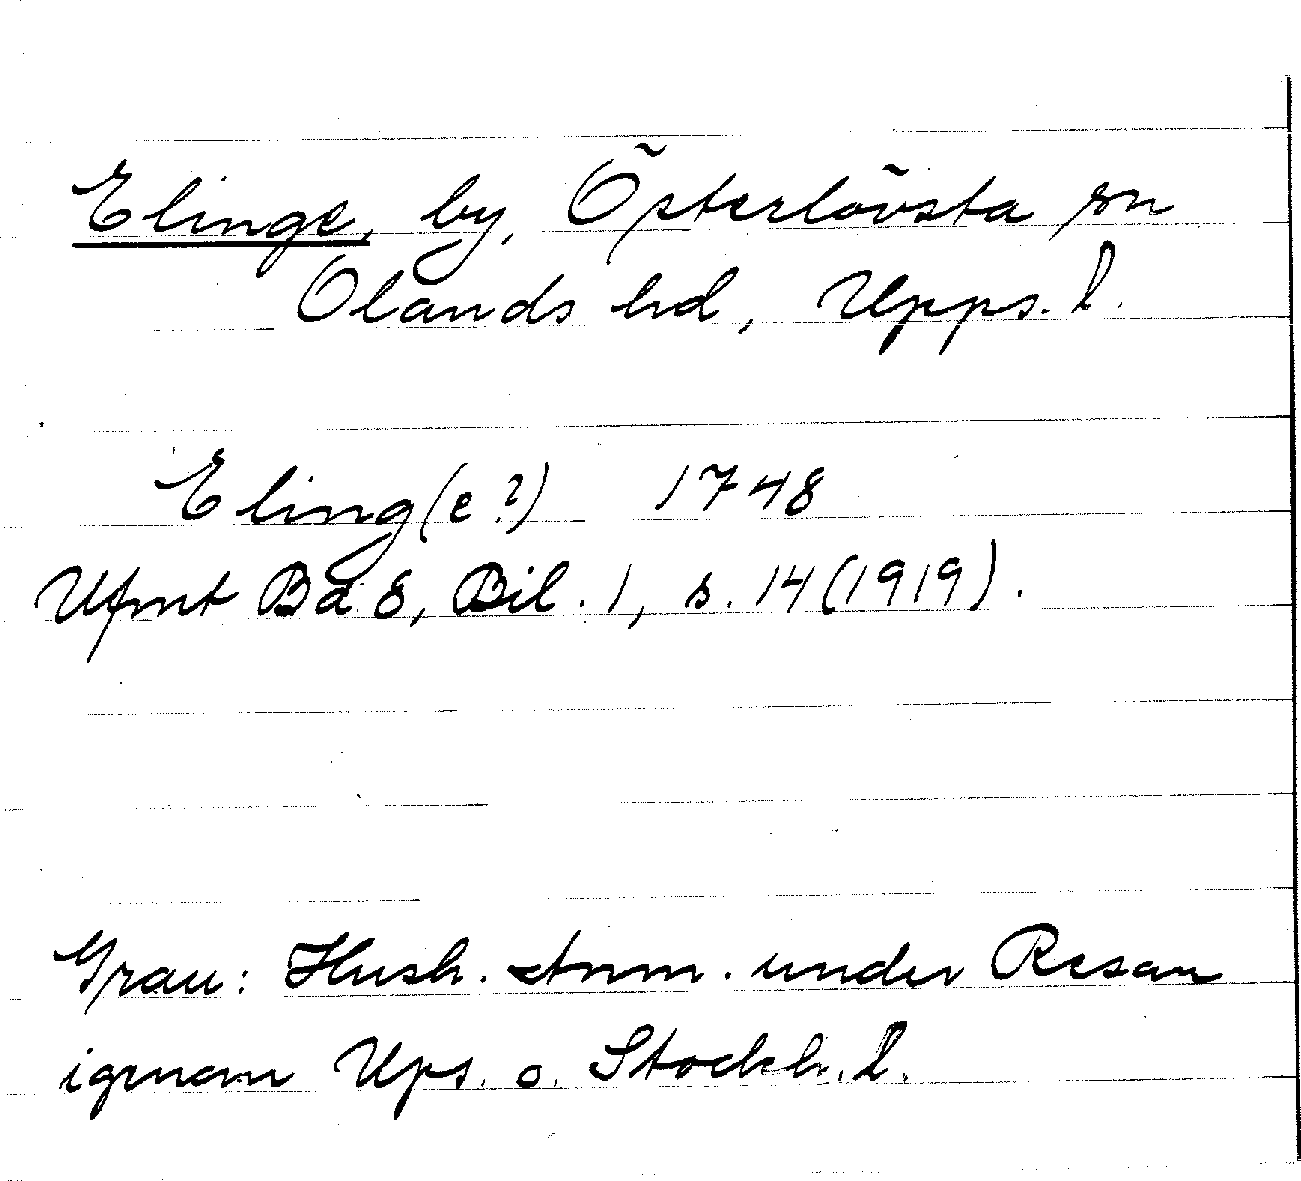 Elinge, by, Österlövsta sn
Olands hd, Upps. l.
Eling(e?) 1748
Ufmt Bd 8, Bil. 1, s. 14 (1919).
Grau: Hush. Anm. under Resan
igenom Ups. o. Stockh. l.